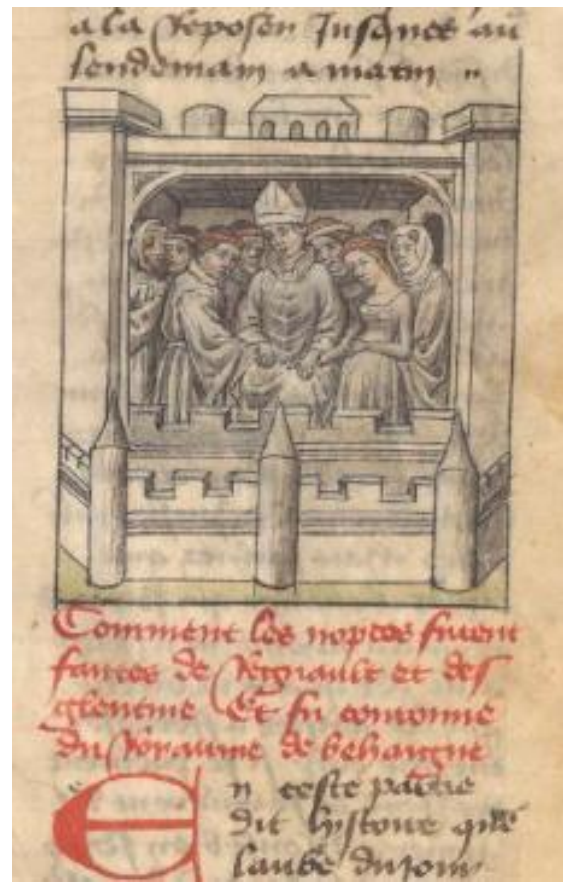 a la Reposen Jusques au
lendemain a matin
Comment les nopces furent
faites de Regnault et des
glentine Et fu couronne
du Royaume de behaigne
En ceste partie
dit lystoire que
laube du jour